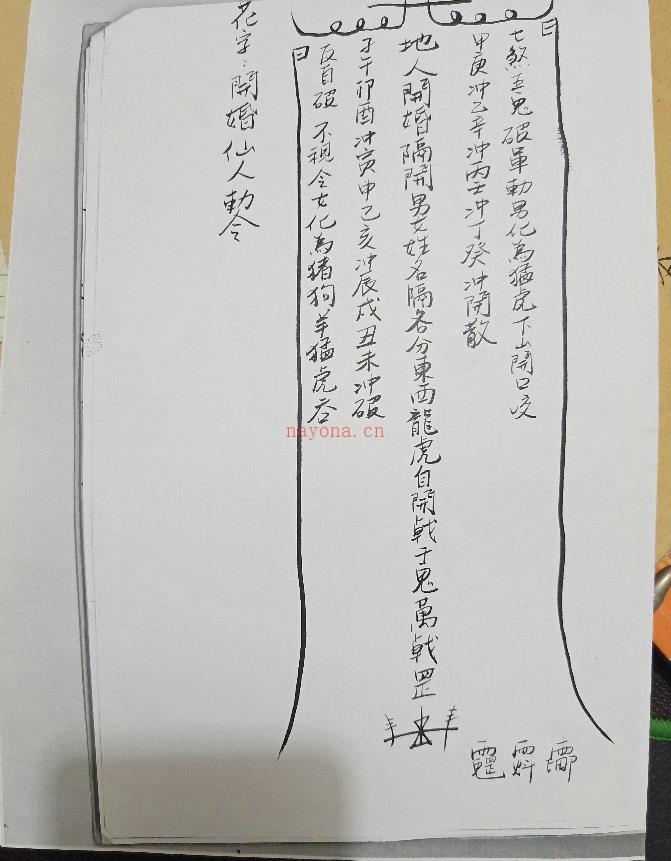 七煞五鬼破軍勅男化為猛虎下山開口咬
甲庚冲乙辛冲丙壬冲丁癸冲開散
地人開婚隔開男女姓名隔各分東西龍虎自開戟于鬼萬戟罡
子午卯酉冲寅申乙亥冲辰戌丑未冲破
反自破不視令女化為猪狗羊猛虎吞
花字:開婚仙人勅令
nayona.cn